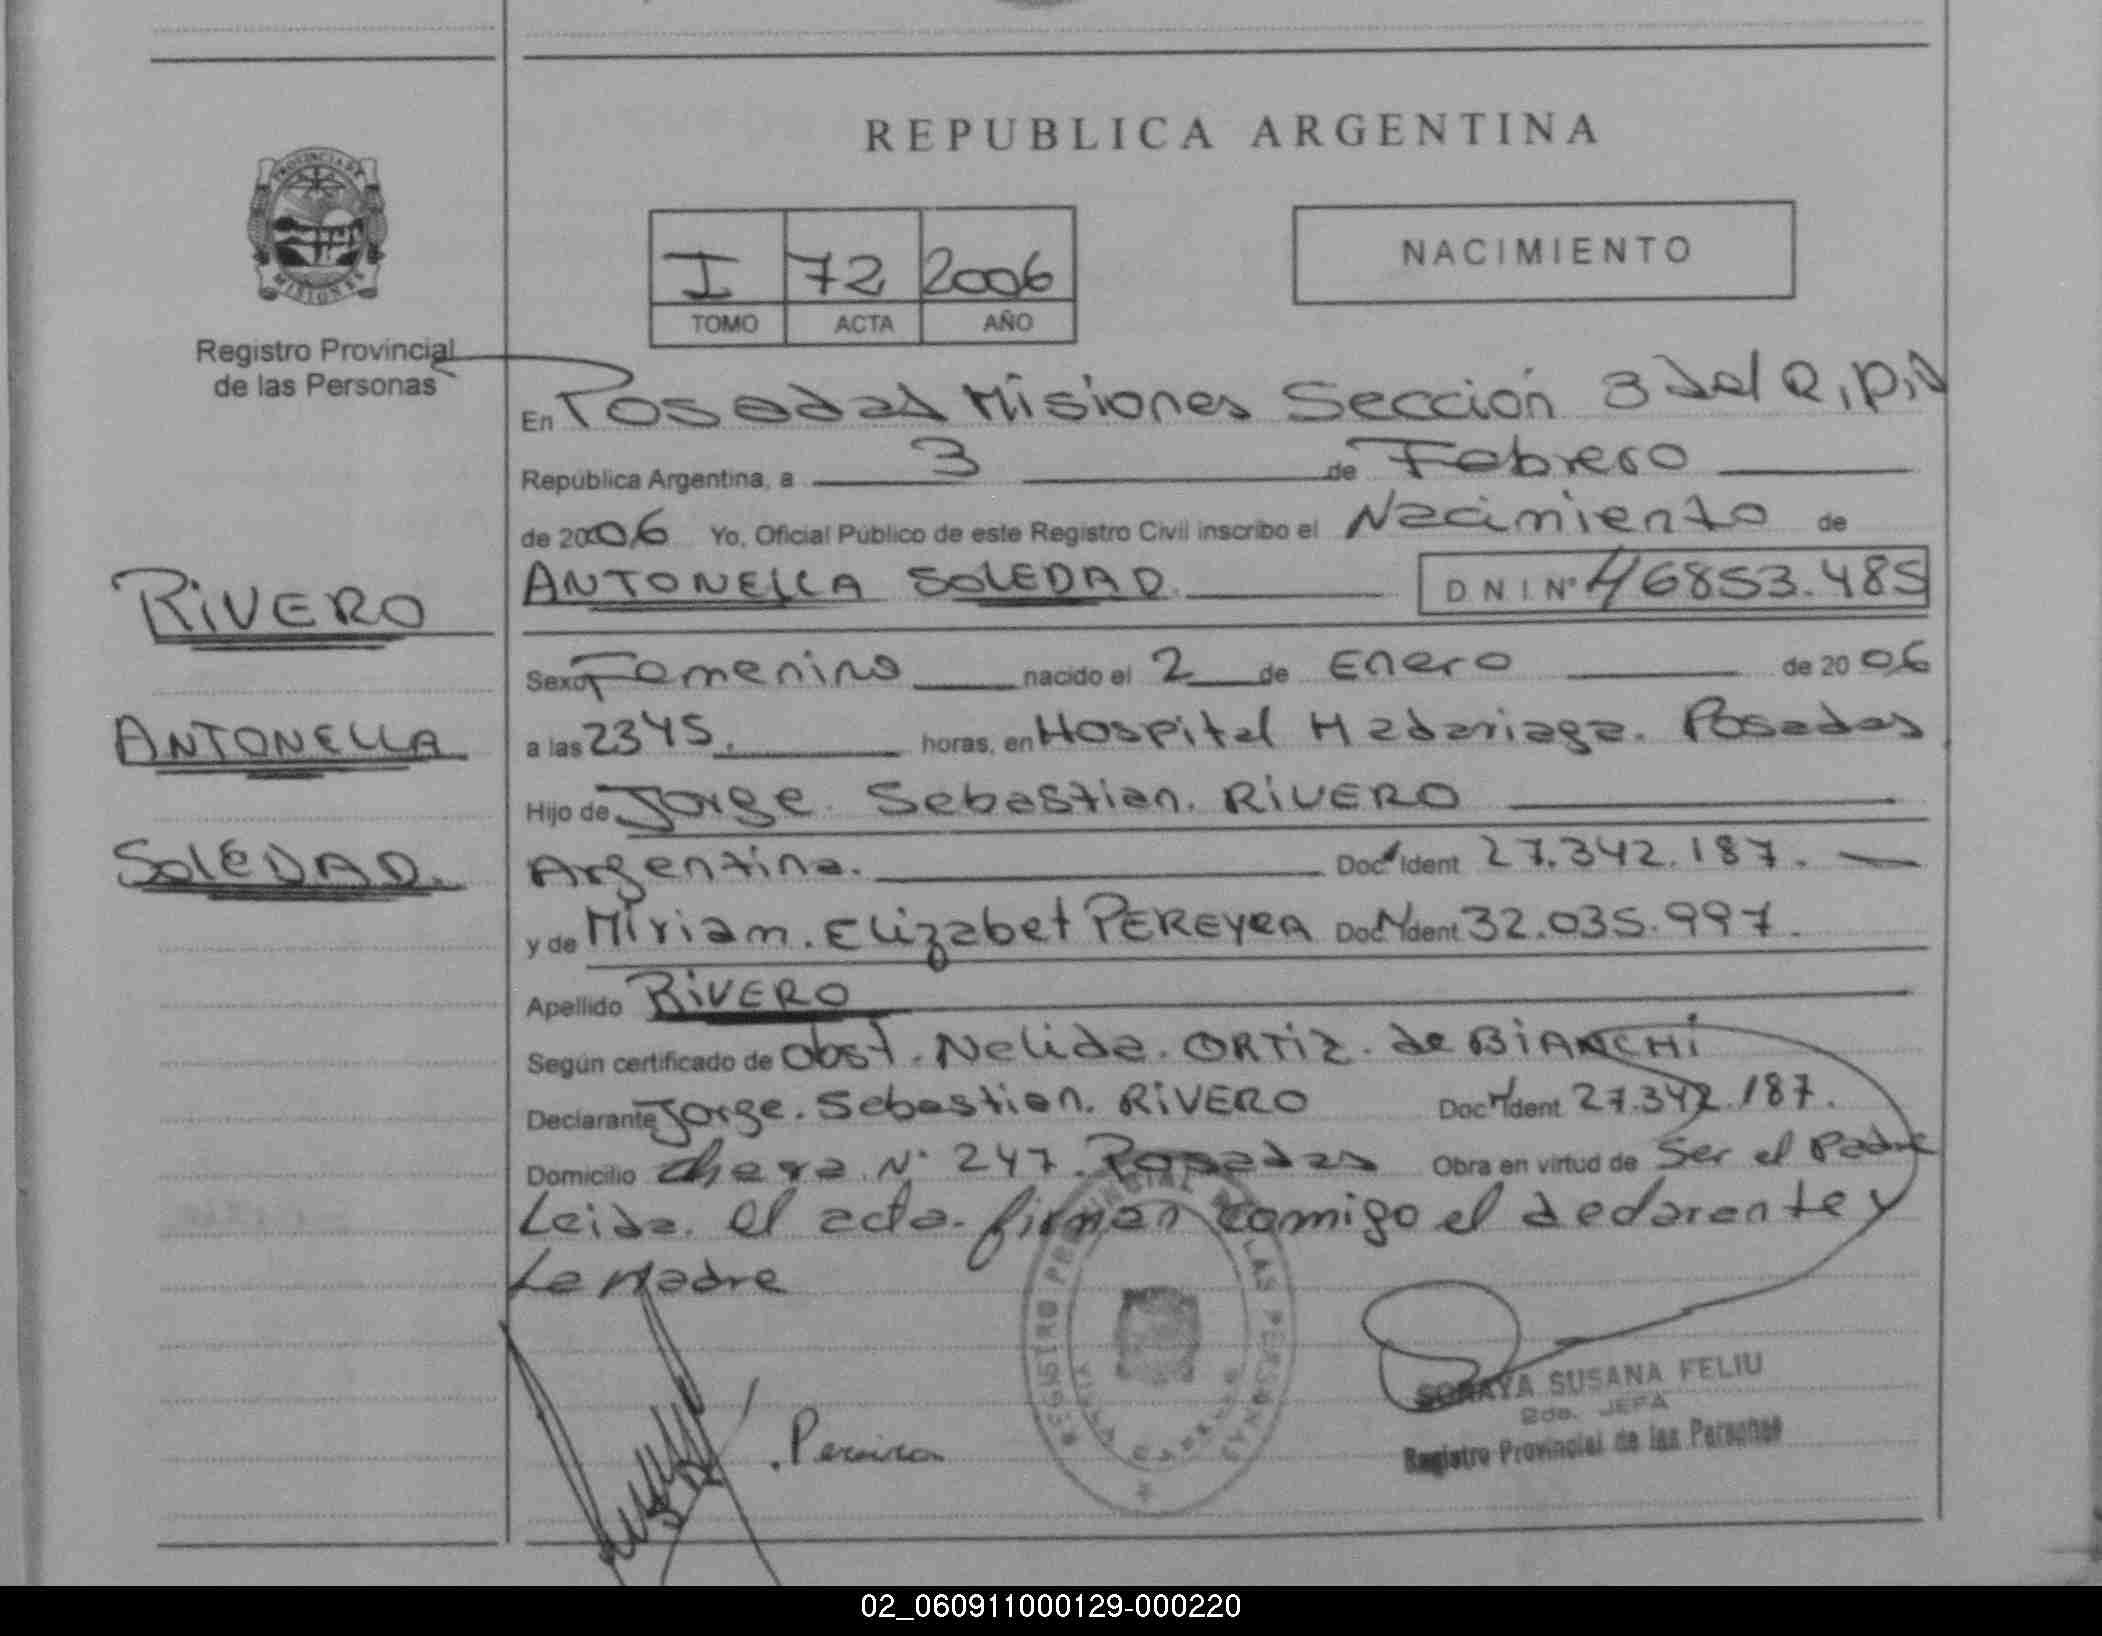 REPUBLICA ARGENTINA
PROVINCIA DE
MISIONES
Registro Provincial
de las Personas
I 72 2006
TOMO ACTA AÑO
NACIMIENTO
En Posadas Misiones Sección 3 del R.P.
República Argentina, a 3 de Febrero
de 2006 Yo, Oficial Público de este Registro Civil inscribo el Nacimiento de
ANTONELLA SOLEDAD. D N I N° 46853.485
RIVERO
ANTONELLA
SOLEDAD.
Sexo Femenino nacido el 2 de Enero de 2006
a las 2345. horas, en Hospital Madariaga. Posadas
Hijo de Jorge. Sebastian. RIVERO
Argentina. Doc. Ident 27.342.187.
y de Miriam. Elizabet PEREYRA Doc. Ident 32.035.997.
Apellido RIVERO
Según certificado de Obst. Nelida. ORTIZ. de BIANCHI
Declarante Jorge. Sebastian. RIVERO Doc. Ident 27.342.187.
Domicilio chacra N° 247. Posadas Obra en virtud de Ser el Padre
Leida. el acta. firman comigo el declarante y
La Madre
Pereira
REGISTRO PROVINCIAL DE LAS PERSONAS
SORAYA SUSANA FELIU
2da. JEFA
Registro Provincial de las Personas
02_060911000129-000220